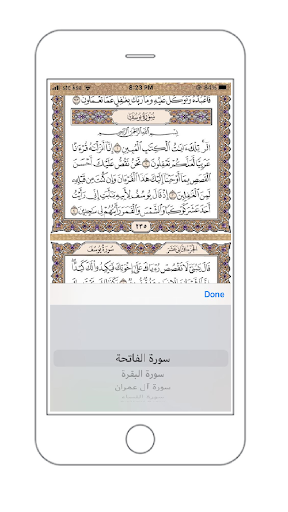 stc ksa 8:23 PM 64%
فَٱعْبُدْهُ وَتَوَكَّلْ عَلَيْهِ وَمَا رَبُّكَ بِغَٰفِلٍ عَمَّا تَعْمَلُونَ
سُورَةُ يُوسُفَ
بِسْمِ ٱللَّهِ ٱلرَّحْمَٰنِ ٱلرَّحِيمِ
الٓر تِلْكَ ءَايَٰتُ ٱلْكِتَٰبِ ٱلْمُبِينِ ١ إِنَّآ أَنزَلْنَٰهُ قُرْءَٰنًا
عَرَبِيًّا لَّعَلَّكُمْ تَعْقِلُونَ ٢ نَحْنُ نَقُصُّ عَلَيْكَ أَحْسَنَ
ٱلْقَصَصِ بِمَآ أَوْحَيْنَآ إِلَيْكَ هَٰذَا ٱلْقُرْءَانَ وَإِن كُنتَ مِن قَبْلِهِۦ
لَمِنَ ٱلْغَٰفِلِينَ ٣ إِذْ قَالَ يُوسُفُ لِأَبِيهِ يَٰٓأَبَتِ إِنِّى رَأَيْتُ
أَحَدَ عَشَرَ كَوْكَبًا وَٱلشَّمْسَ وَٱلْقَمَرَ رَأَيْتُهُمْ لِى سَٰجِدِينَ ٤
٢٣٥
سُورَةُ يُوسُفَ
الجزء الثاني عشر
قَالَ يَٰبُنَىَّ لَا تَقْصُصْ رُءْيَاكَ عَلَىٰٓ إِخْوَتِكَ فَيَكِيدُوا۟ لَكَ كَيْدًا
Done
سورة الفاتحة
سورة البقرة
سورة آل عمران
سورة النساء